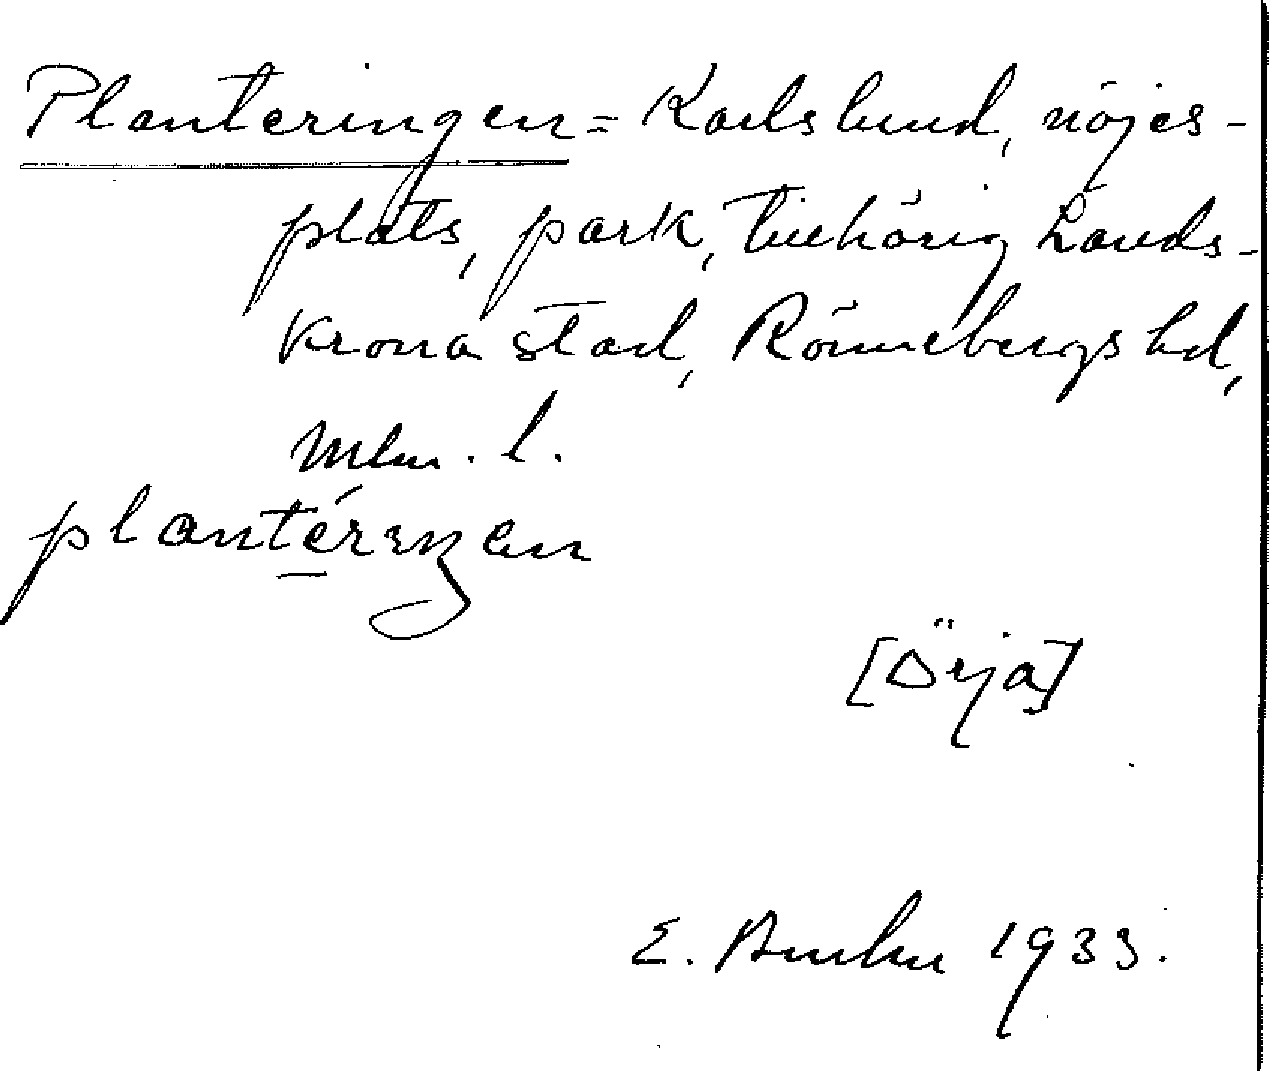 Planteringen = Karlslund, nöjes-
plats, park, tillhörig Lands-
krona stad, Rönnebergs hd,
Mlm. l.
[Örja]
E. 1933.